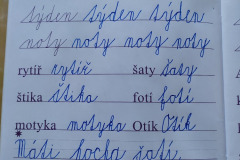 týden týden týden
noty noty noty noty
rytíř rytíř šaty šaty
štika štika fotí fotí
motyka motyka Otík Otík
Máti